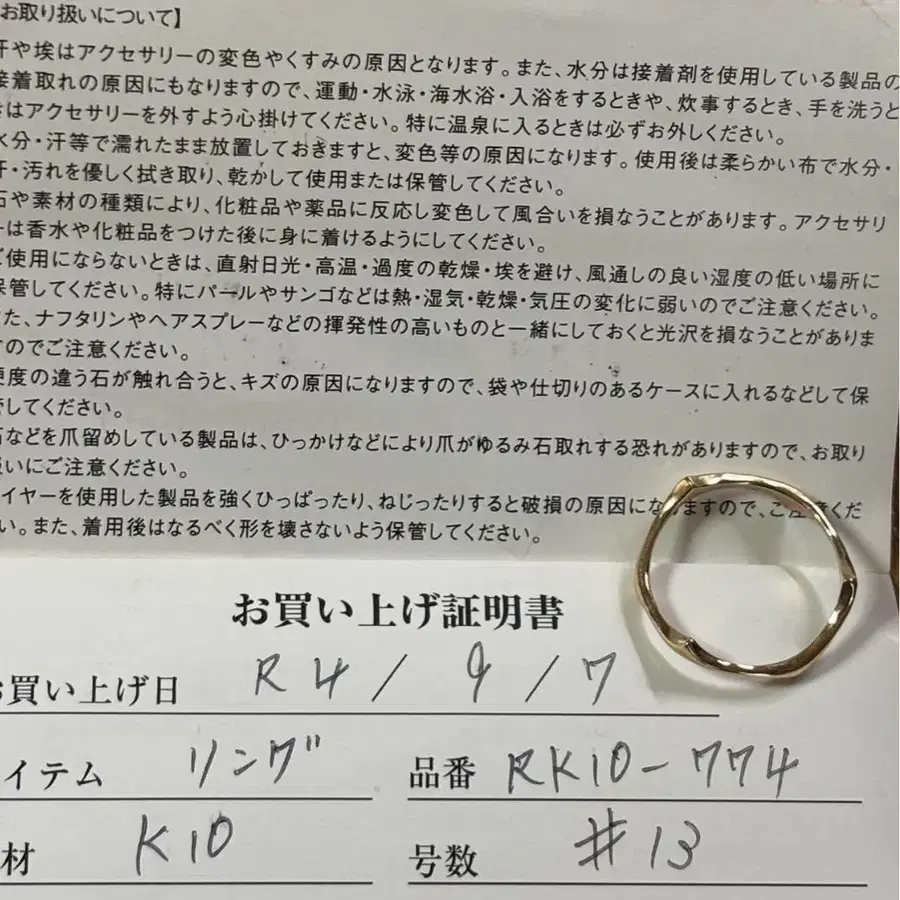 お取り扱いについて】
汗や埃はアクセサリーの変色やくすみの原因となります。また、水分は接着剤を使用している製品の
接着取れの原因にもなりますので、運動・水泳・海水浴・入浴をするときや、炊事するとき、手を洗うと
きはアクセサリーを外すよう心掛けてください。特に温泉に入るときは必ずお外しください。
水分・汗等で濡れたまま放置しておきますと、変色等の原因になります。使用後は柔らかい布で水分・
汗・汚れを優しく拭き取り、乾かして使用または保管してください。
石や素材の種類により、化粧品や薬品に反応し変色して風合いを損なうことがあります。アクセサリ
ーは香水や化粧品をつけた後に身に着けるようにしてください。
ご使用にならないときは、直射日光・高温・過度の乾燥・埃を避け、風通しの良い湿度の低い場所に
保管してください。特にパールやサンゴなどは熱・湿気・乾燥・気圧の変化に弱いのでご注意ください。
た、ナフタリンやヘアスプレーなどの揮発性の高いものと一緒にしておくと光沢を損なうことがありま
すのでご注意ください。
硬度の違う石が触れ合うと、キズの原因になりますので、袋や仕切りのあるケースに入れるなどして保
管してください。
石などを爪留めしている製品は、ひっかけなどにより爪がゆるみ石取れする恐れがありますので、お取り
扱いにご注意ください。
イヤーを使用した製品を強くひっぱったり、ねじったりすると破損の原因になりますので、ご注意くだ
い。また、着用後はなるべく形を壊さないよう保管してください。
お買い上げ証明書
お買い上げ日 R4/9/7
イテム リング 品番 RK10-774
材 K10 号数 #13